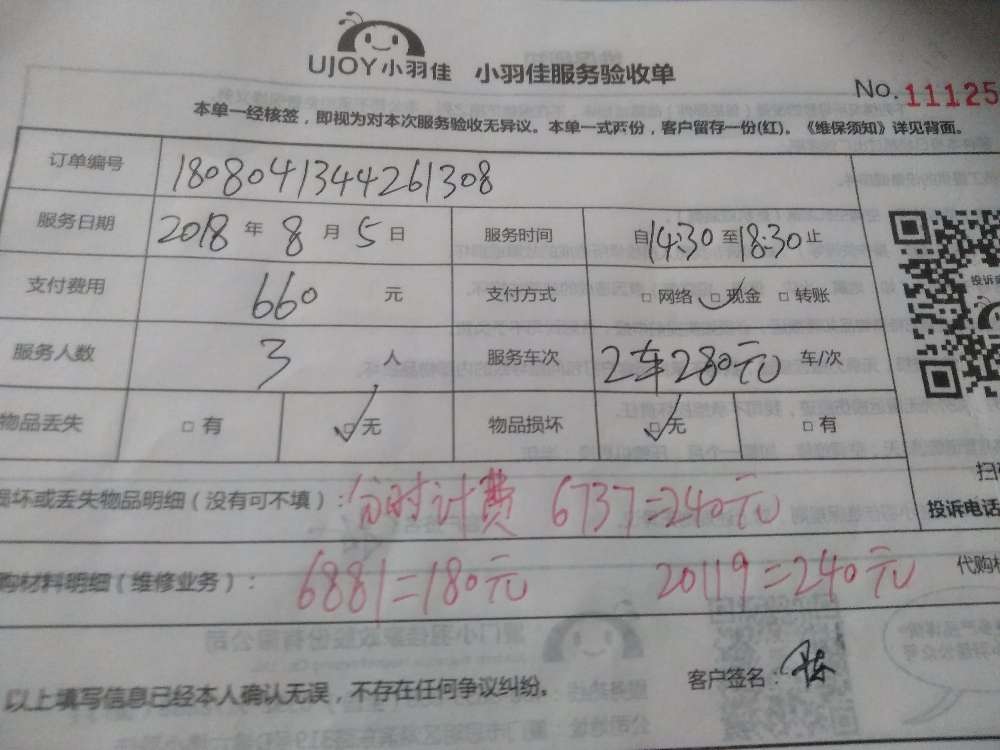 UJOY小羽佳 小羽佳服务验收单
No.11125
本单一经核签，即视为对本次服务验收无异议。本单一式两份，客户留存一份(红)。《维保须知》详见背面。
订单编号 1808041344261308
服务日期 2018年8月5日 服务时间 自14:30至18:30止
支付费用 660元 支付方式 □网络 □现金 □转账
服务人数 3人 服务车次 2车280元 车/次
物品丢失 □有 □无 物品损坏 □无 □有
损坏或丢失物品明细（没有可不填）：分时计费 6737=240元
投诉电话
购材料明细（维修业务）：6881=180元 20119=240元 代购
以上填写信息已经本人确认无误，不存在任何争议纠纷。 客户签名：